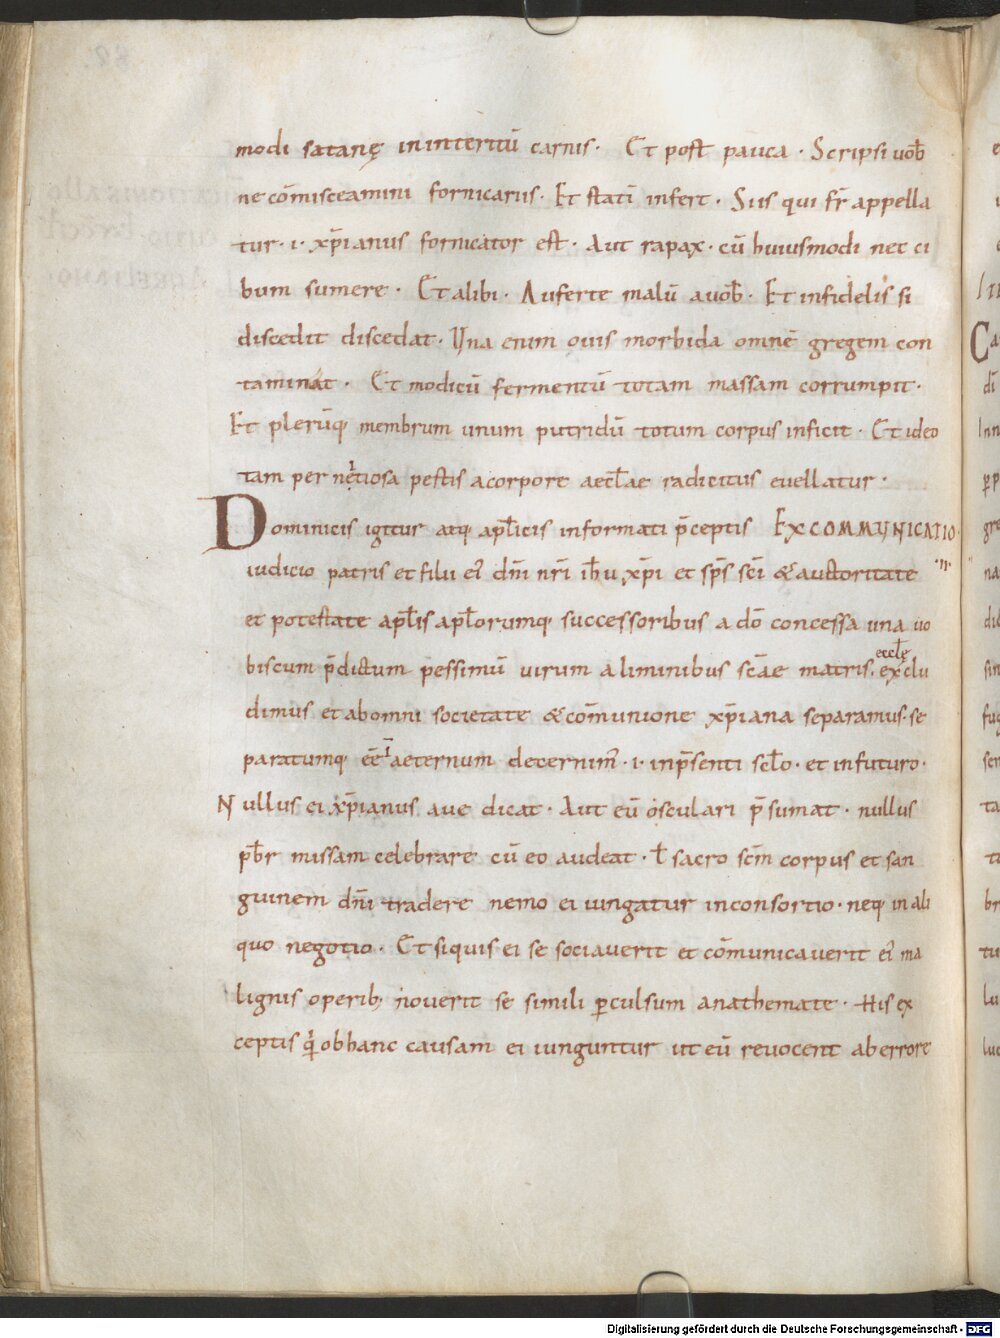 modi satanę inintericū carnis · Et post pauca · Scripsi uob̄
ne cōmisceamini fornicariis · Et statī infert · Siis qui fr̄ appella
tur · i · xp̄ianus fornicator est · Aut rapax · cū huiusmodi nec ci
bum sumere · Et alibi · Auferte malū auob̄ · Et infidelis si
discedit discedat · Una enim ouis morbida omnē gregem con
taminat · Et modicū fermentū totam massam corrumpit ·
Et plerūq; membrum unum putridū totum corpus inficit · Et ideo
tam per nẹtiosa pestis acorpore aecl̄ae radicitus euellatur ·
Dominicis igitur atq; apl̄icis informati p̄ceptis EXCOMMUNICATIO
iudicio patris et filii ei᷒ dn̄i nr̄i ih̄u xp̄i et sp̄s sc̄i & auctoritate ·II·
et potestate apl̄is apl̄orumq; successoribus a dō concessa una uo
biscum p̄dictum pessimū uirum aliminibus sc̄ae matris · ecclę exclu
dimus et abomni societate & cōmunione xp̄iana separamus · se
paratumq; ēē i aeternum decernim᷒ · i · inp̄senti scl̄o · et infuturo ·
Nullus ei xp̄ianus aue dicat · Aut eū osculari p̄sumat · nullus
pb̄r missam celebrare cū eo audeat · ł sacro scm̄ corpus et san
guinem dn̄i tradere nemo ei iungatur inconsortio · neq; in ali
quo negotio · Et siquis ei se sociauerit et cōmunicauerit ei᷒ ma
lignis operib; nouerit se simili ꝑculsum anathemate · His ex
ceptis q̇ obhanc causam ei iunguntur ut eū reuocent aberrore
Digitalisierung gefördert durch die Deutsche Forschungsgemeinschaft - DFG